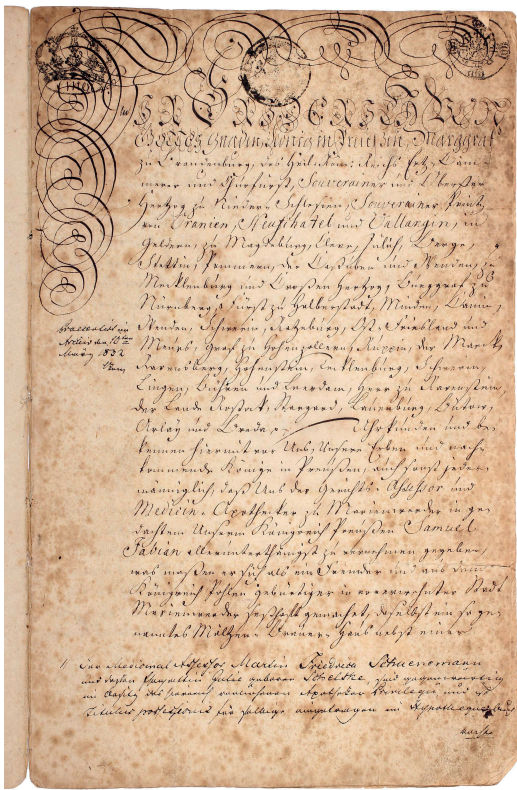 Wir Friederich Von
Gottes Gnaden König in Preussen, Marggraf
zu Brandenburg, des Heil. Röm: Reichs Ertz-Cäm-
merer und Churfürst, Souverainer und Oberster
Hertzog zu Niedern Schlesien, Souverainer Printz
von Oranien, Neufchatel und Vallangin, in
Geldern, zu Magdeburg, Cleve, Jülich, Berge,
Stettin, Pommern, der Cassuben und Wenden, zu
Mecklenburg und Crossen Hertzog, Burggraf zu
Nürnberg, Fürst zu Halberstadt, Minden, Camin,
Wenden, Schwerin, Ratzeburg, Ost-Friesland und
Meurs, Graf zu Hohenzollern, Ruppin, der Marck,
Ravensberg, Hohenstein, Tecklenburg, Schwerin,
Lingen, Bühren und Leerdam, Herr zu Ravenstein,
der Lande Rostock, Stargard, Lauenburg, Bütow,
Arlay und Breda. Uhrkunden und be-
kennen hiermit vor Uns, Unsere Erben und nach-
kommende Könige in Preußen, auch sonst jeder-
männiglich, daß Uns der Gerichts-Assessor und
Medicin-Apothecker zu Marienwerder in ge-
dachtem Unserm Königreich Preußen Samuel
Fabian allerunterthänigst zu vernehmen gegeben,
was maßen er sich als ein Fremder und aus dem
Königreich Pohlen gebürtiger in vorerwehnter Stadt
Marienwerder seßhaft gemachet, daselbst ein so ge-
nanntes Mältzen-Brauer-Hauß nebst einer
März 1832
Der Medicinal Assessor Martin Friedrich Schuenemann
und dessen Gemahlin Julie geborne Schelske, sind gegenwaertig
im Besitz des hierin verliehenen Apotheker Privilegii und
Titulus possessionis für selbige eingetragen im Hypothequenbuch